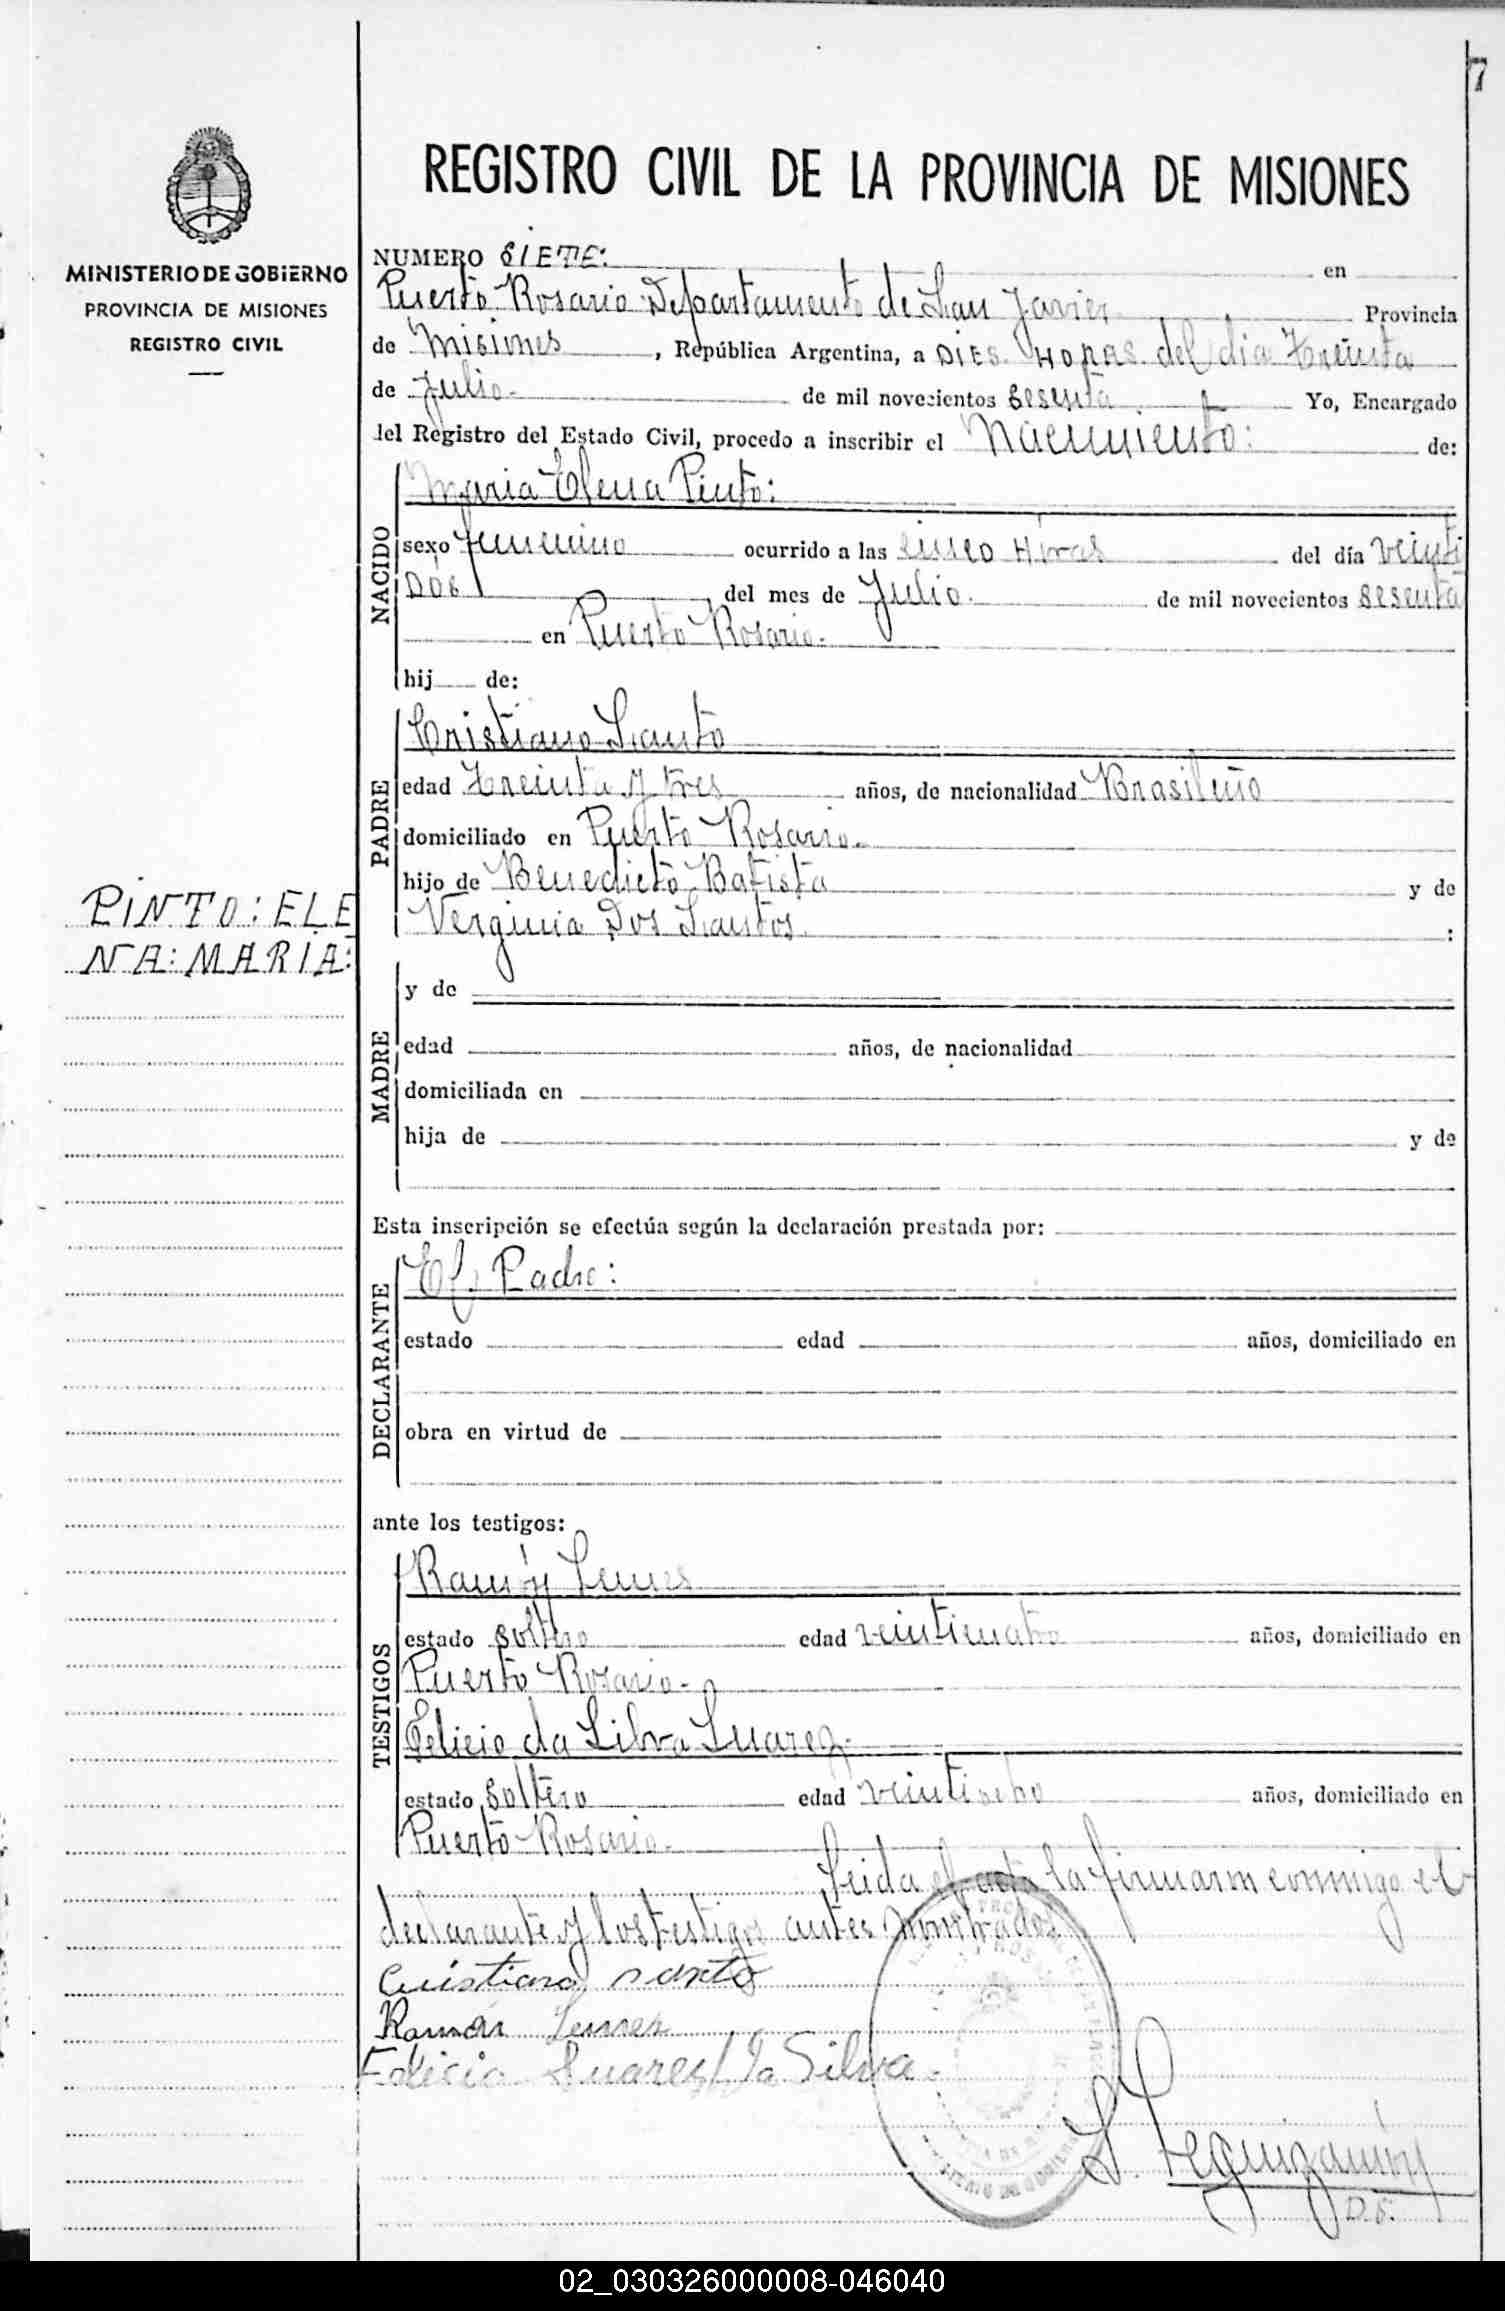 7
REGISTRO CIVIL DE LA PROVINCIA DE MISIONES
MINISTERIO DE GOBIERNO
PROVINCIA DE MISIONES
REGISTRO CIVIL
NUMERO SIETE: en
Puerto Rosario Departamento de San Javier Provincia
de Misiones, República Argentina, a DIES HORAS del dia Treinta
de Julio. de mil novecientos sesenta Yo, Encargado
del Registro del Estado Civil, procedo a inscribir el Nacimiento: de:
NACIDO
Maria Elena Pinto:
sexo femenino ocurrido a las cinco Horas del día veinti
DÓS del mes de Julio. de mil novecientos sesenta
en Puerto Rosario.
hij de:
PADRE
Cristiano Santo
edad Treinta y tres años, de nacionalidad Brasileño
domiciliado en Puerto Rosario.
hijo de Benedicto Batista y de
Verginia Dos Santos. :
PINTO: ELE
NA: MARIA:
MADRE
y de
edad años, de nacionalidad
domiciliada en
hija de y de
Esta inscripción se efectúa según la declaración prestada por:
DECLARANTE
El Padre:
estado edad años, domiciliado en
obra en virtud de
ante los testigos:
TESTIGOS
Ramón
estado soltero edad veinticuatro años, domiciliado en
Puerto Rosario.-
Felicio da Silva Suarez.
estado soltero edad veintiocho años, domiciliado en
Puerto Rosario.
leida el acta la firmaron conmigo el
declarante y los testigos antes nombrados
Cristiano santo
Ramón
Felicio Suares da Silva.
S. Leguizamón
D.S.
02_030326000008-046040